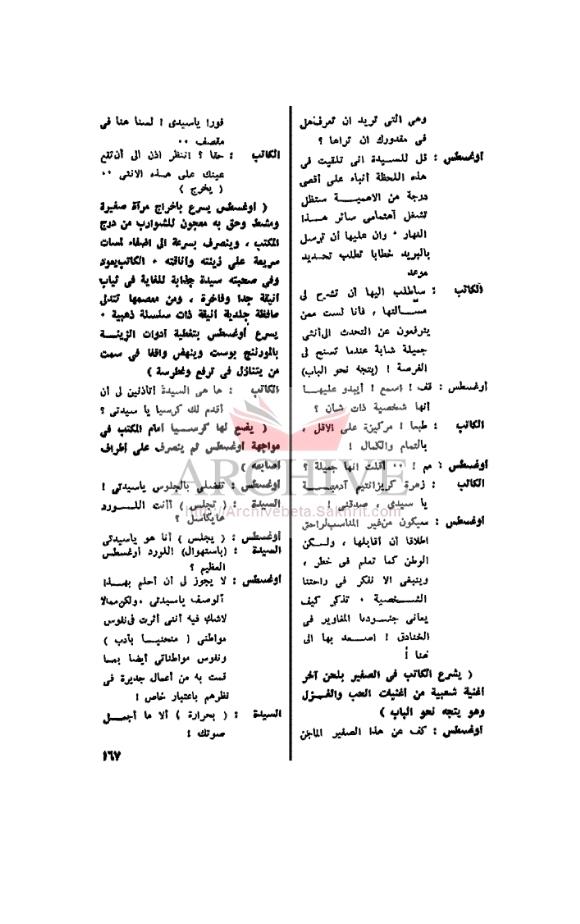 وهى التى تريد ان تعرف هل
فى مقدورك ان تراها ؟
أوغسطس : قل للسيدة انى تلقيت فى
هذه اللحظة أنباء على أقصى
درجة من الاهميـــة ستظل
تشغل أهتمامى سائر هــذا
النهار ٠ وان عليها أن ترسل
بالبريد خطابا تطلب تحديد
موعد
الكاتب : سأطلب اليها أن تشرح لى
مســألتها ، فأنا لست ممن
يترفعون عن التحدث الى أنثى
جميلة شابة عندما تسنح لى
الفرصة ! (يتجه نحو الباب)
أوغسطس : قف ! اسمع ! أيبدو عليهــا
أنها شخصية ذات شان ؟
الكاتب : طبعا ! مركيزة على الاقل ،
بالتمام والكمال !
أوغسطس : مم ! ٠٠ أقلت انها جميلة ؟
الكاتب : زهرة كريزانتيم آدميـــة
يا سيدى ، صدقنى !
أوغسطس : سيكون من غير المناسب لراحتى
اطلاقا أن أقابلها ، ولــكن
الوطن كما تعلم فى خطر ،
وينبغى الا نفكر فى راحتنا
الشــخصية ٠ تذكر كيف
يعانى جنــودنا المغاوير فى
الخنادق ! اصــعد بها الى
هنا !
( يشرع الكاتب فى الصفير بلحن آخر
اغنية شعبية من اغنيات الحب والغــزل
وهو يتجه نحو الباب )
أوغسطس : كف عن هذا الصفير الماجن
فورا ياسيدى ! لسنا هنا فى
مقصف ٠٠
الكاتب : حقا ؟ انتظر اذن الى أن تقع
عينك على هــذه الانثى ٠٠
( يخرج )
( أوغسطس يسرع باخراج مرآة صغيرة
ومشط وحق به معجون للشوارب من درج
المكتب ، وينصرف بسرعة الى اضفاء لمسات
سريعة على زينته وأناقته ٠ الكاتب يعود
وفى صحبته سيدة جذابة للغاية فى ثياب
أنيقة جدا وفاخرة ، ومن معصمها تتدلى
حافظة جلدية أنيقة ذات سلسلة ذهبية ٠
يسرع أوغسطس بتغطية أدوات الزينــة
بالمورننج بوست وينهض واقفا فى سمت
من يتنازل فى ترفع وغطرسة )
الكاتب : ها هى السيدة أتأذنين لى أن
أقدم لك كرسيا يا سيدتى ؟
( يضع لها كرســـيا أمام المكتب فى
مواجهة أوغسطس ثم ينصرف على أطراف
أصابعه )
أوغسطس : تفضلى بالجلوس ياسيدتى !
السيدة : ( تجلس ) أأنت اللــورد
هايكاسل ؟
أوغسطس : ( يجلس ) أنا هو ياسيدتى
السيدة : (باستهوال) اللورد أوغسطس
العظيم ؟
أوغسطس : لا يجوز لى أن أحلم بهــذا
الوصف ياسيدتى ٠ ولكن ممالا
لاشك فيه أننى أثرت فى نفوس
مواطنى ( منحنيــا بأدب )
ونفوس مواطناتى أيضا بمــا
قمت به من أعمال جديرة فى
نظرهم باعتبار خاص !
السيدة : ( بحرارة ) ألا ما أجمــل
صوتك !
١٦٧
ARCHIVE
http://Archivebeta.Sakhrit.com